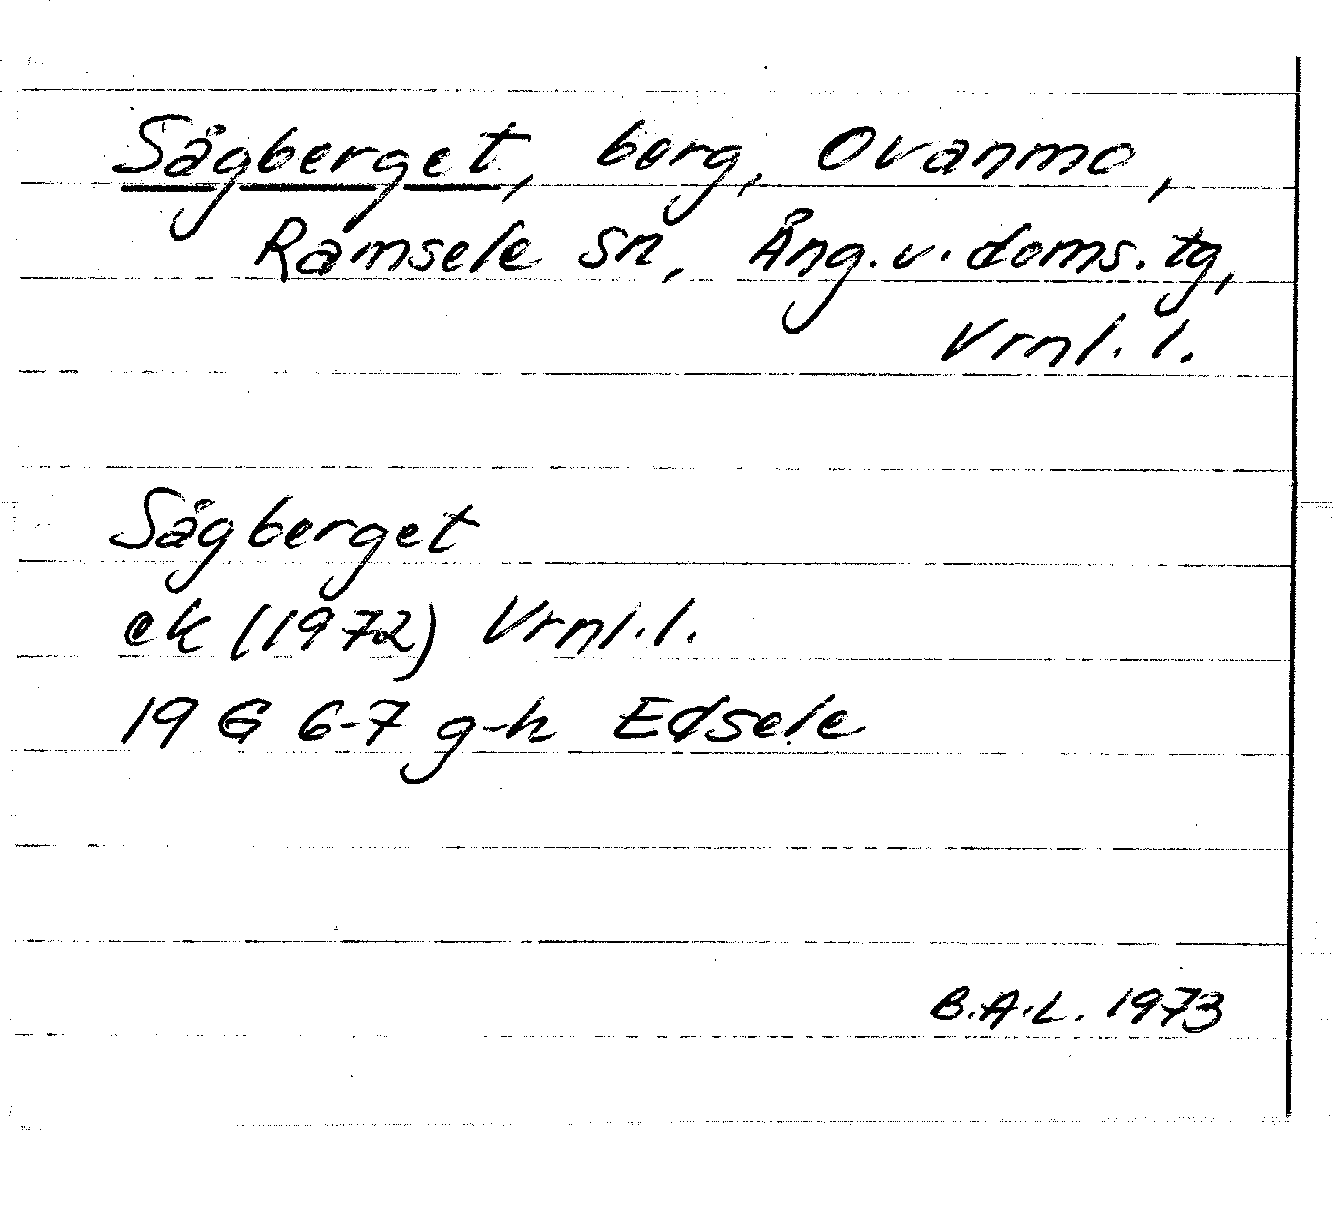 Sågberget, berg, Ovanmo,
Ramsele sn, Ång.v.doms.tg,
Vrnl.l.
Sågberget
ek (1972) Vrnl.l.
19 G 6-7 g-h Edsele
B.A.L. 1973